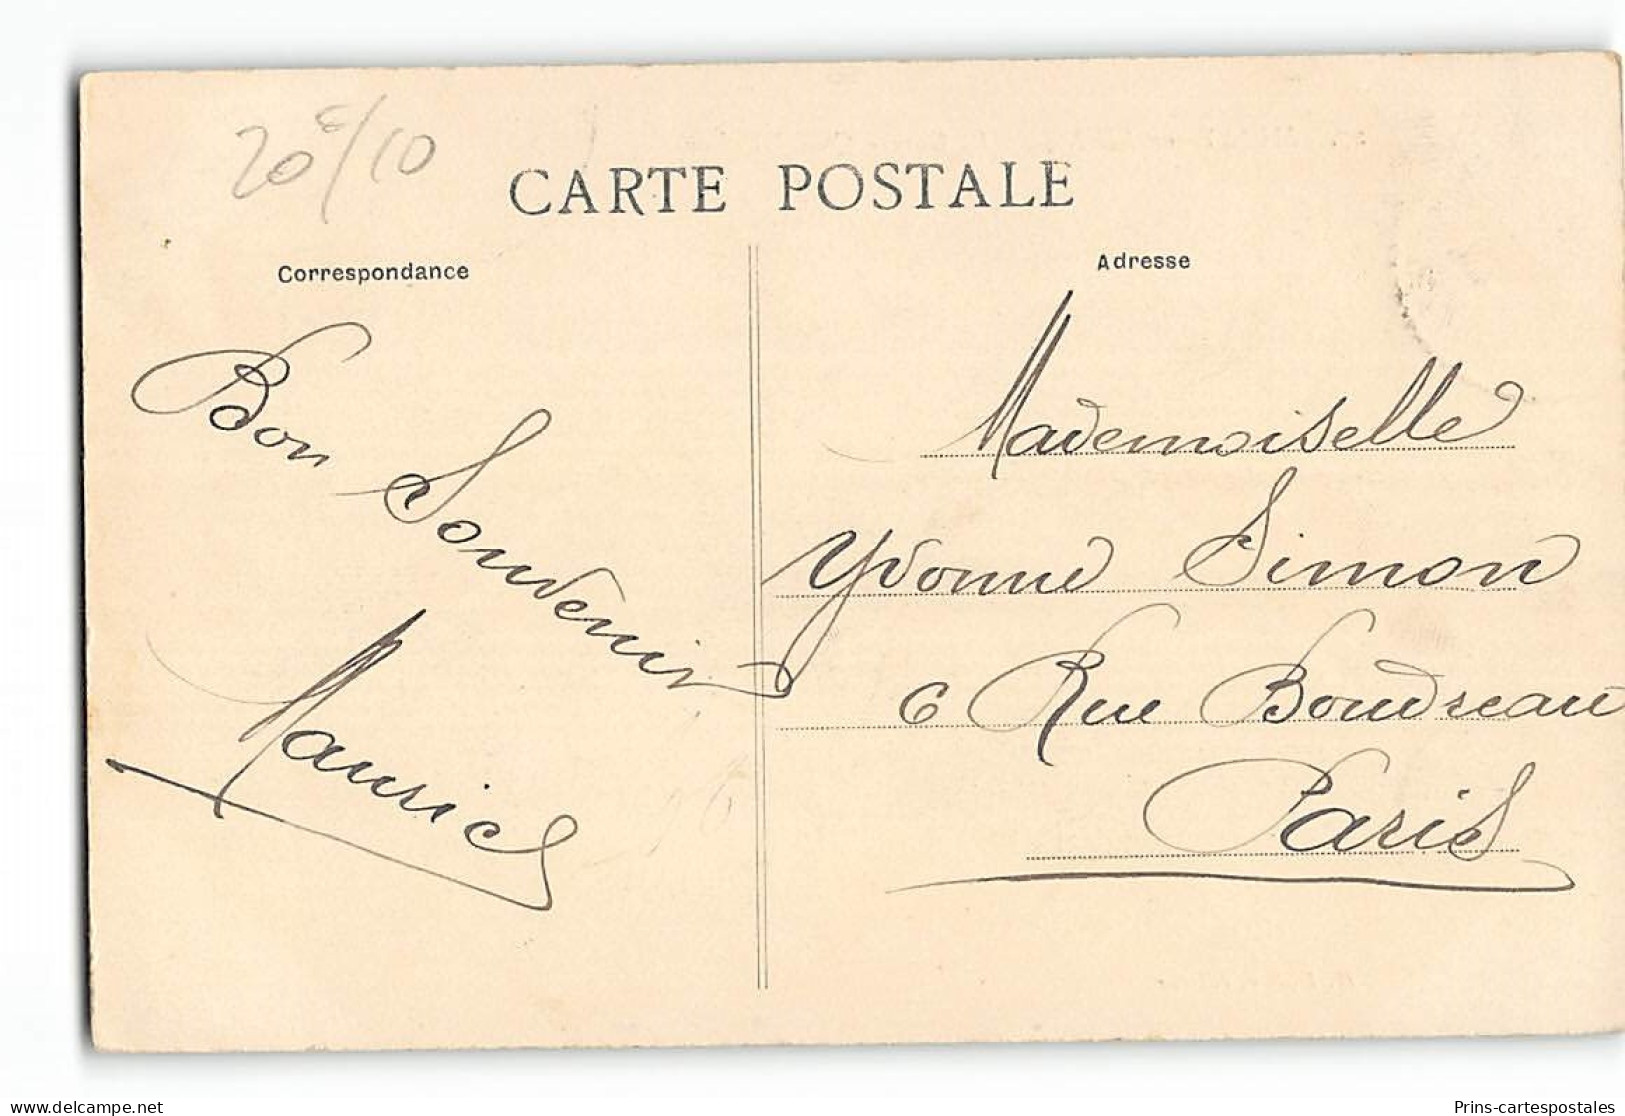 20E/10
CARTE POSTALE
Correspondance
Adresse
Bon Souvenir
Maurice
Mademoiselle
Yvonne Simon
6 Rue Boudreau
Paris
delcampe.net
Prins-cartespostales